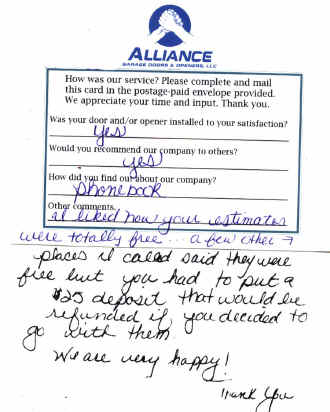 ALLIANCE
GARAGE DOORS & OPENERS, LLC
How was our service? Please complete and mail
this card in the postage-paid envelope provided.
We appreciate your time and input. Thank you.
Was your door and/or opener installed to your satisfaction?
yes
Would you recommend our company to others?
yes
How did you find out about our company?
phonebook
Other comments
I liked how your estimates
were totally free... a few other →
places I called said they were
free but you had to put a
$25 deposit that would be
refunded if you decided to
go with them.
We are very happy!
Thank You